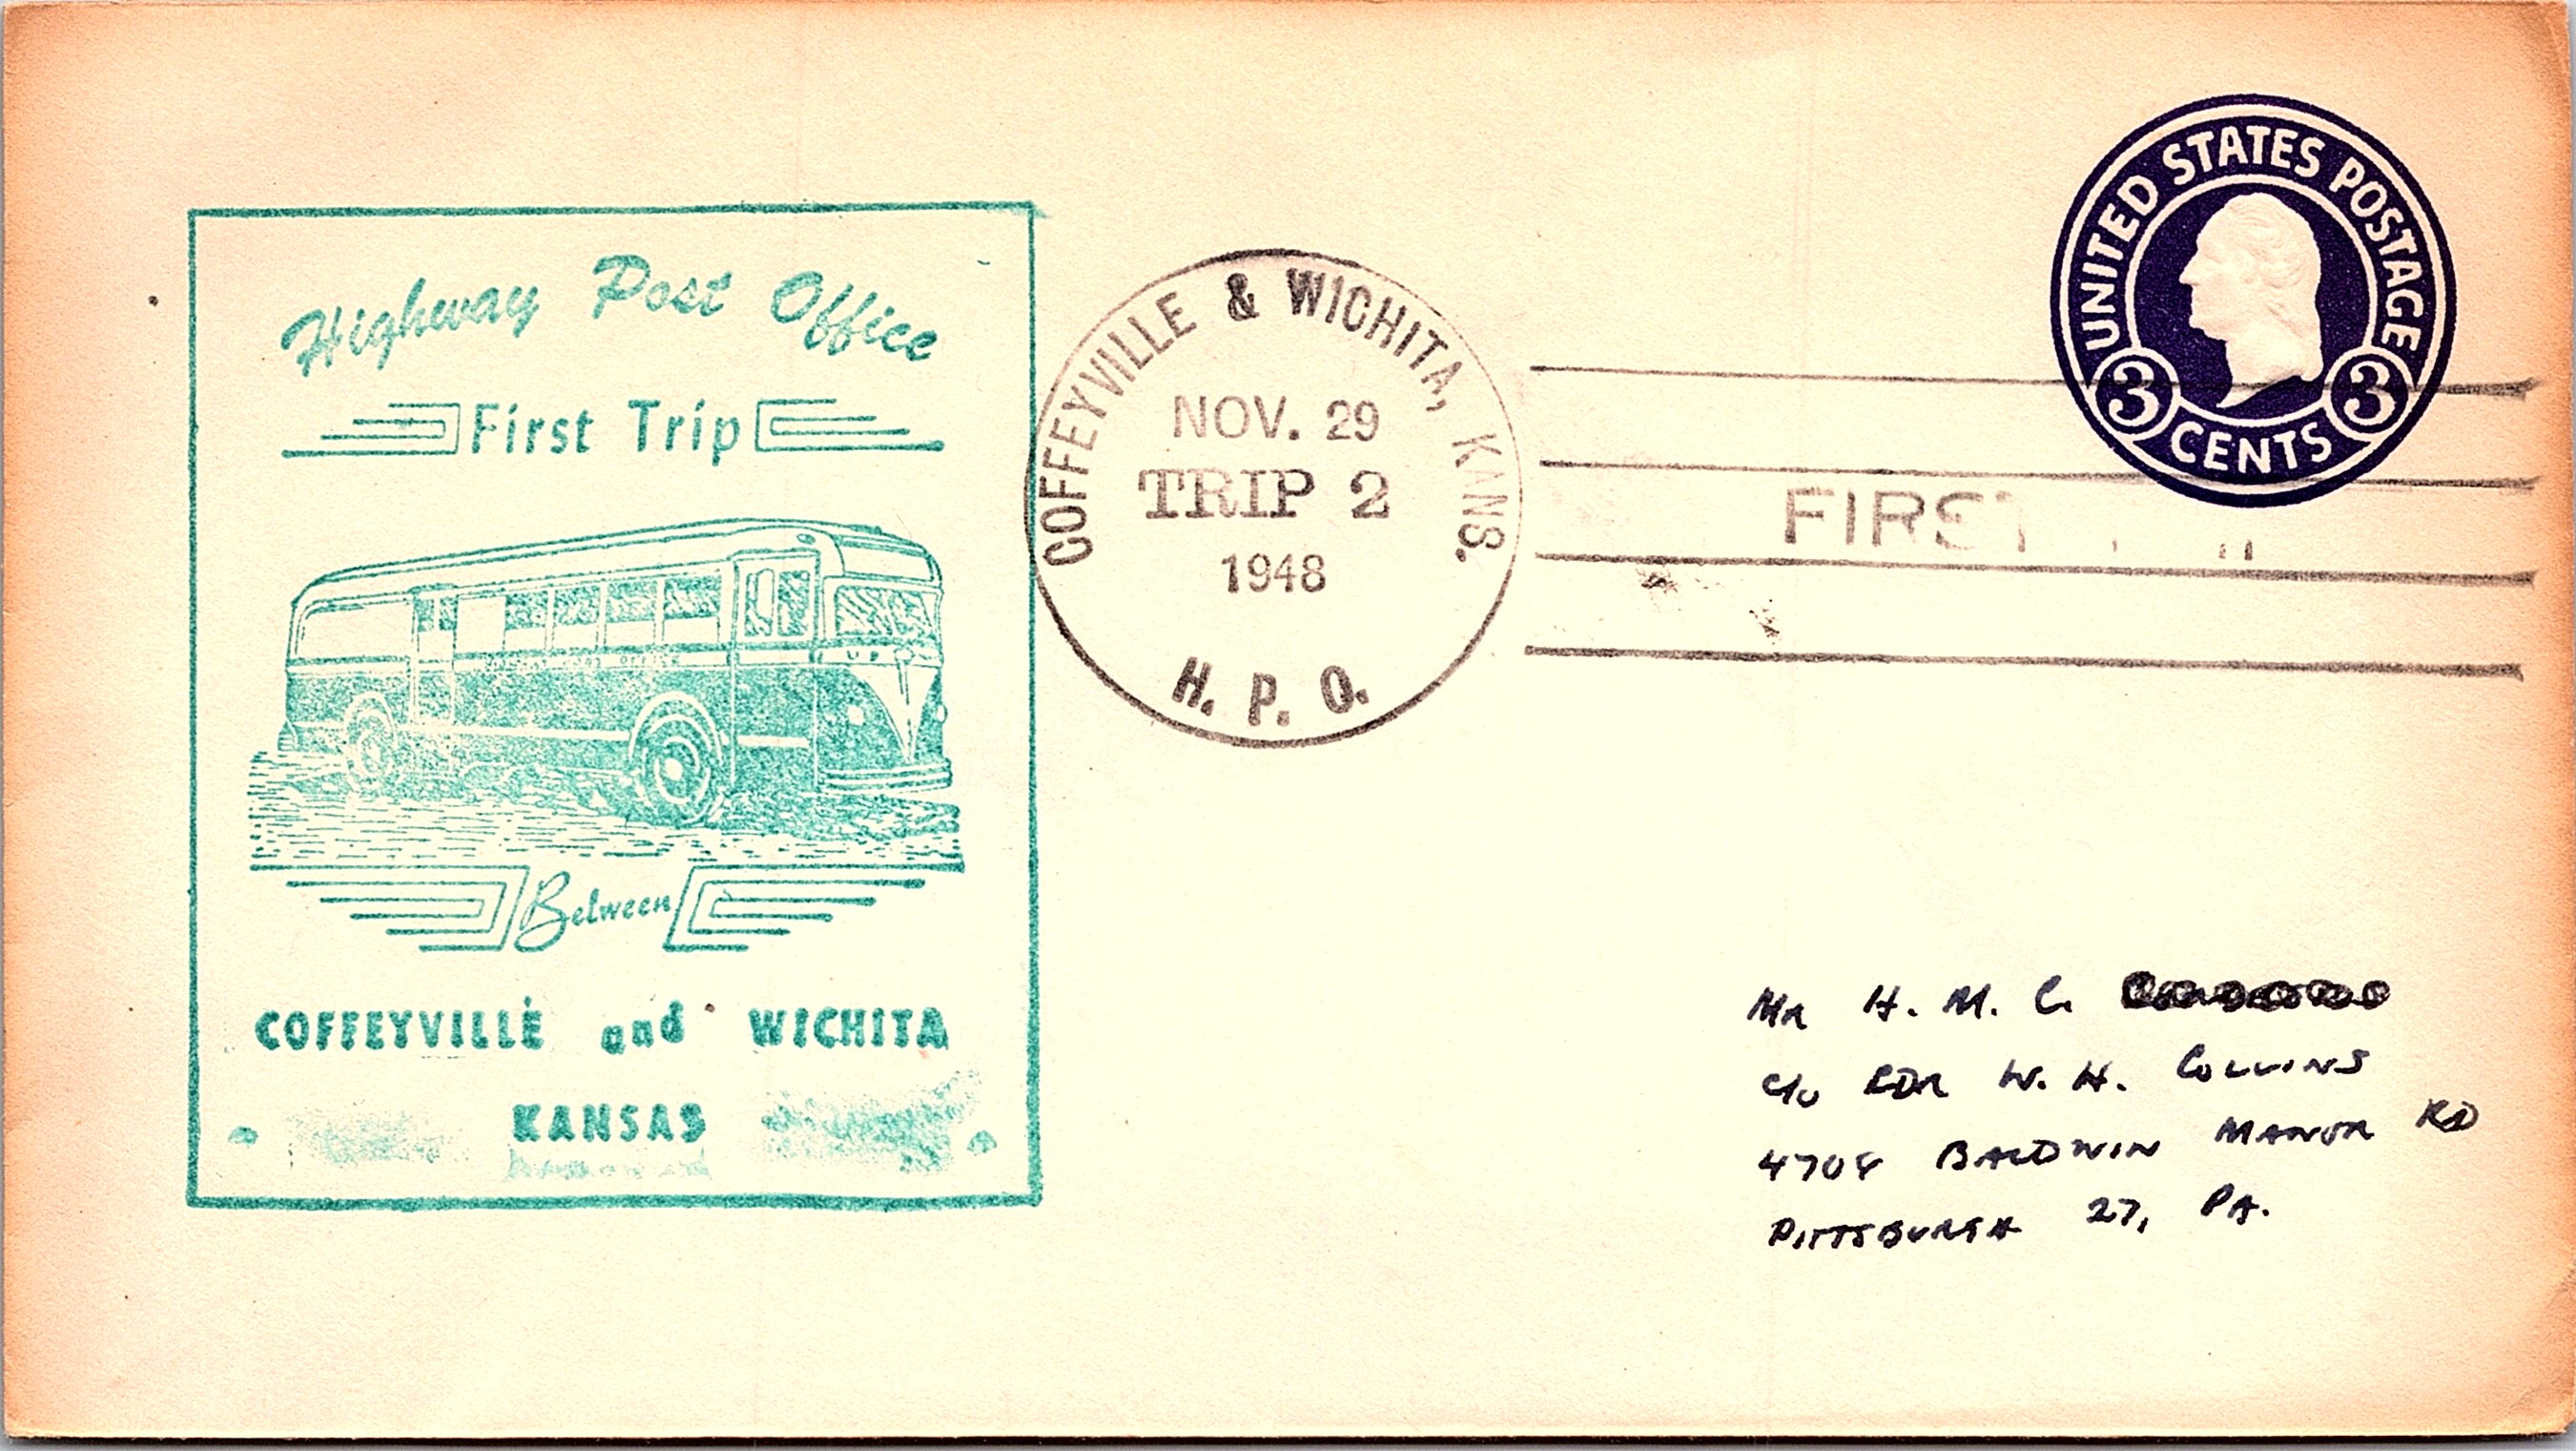 Highway Post Office
First Trip
Between
COFFEYVILLE and WICHITA
KANSAS
COFFEYVILLE & WICHITA, KANS.
NOV. 29
TRIP 2
1948
H. P. O.
FIRST
UNITED STATES POSTAGE
3 3
CENTS
Mr H. M. C.
c/o CDR W. H. COLLINS
4708 BALDWIN MANOR RD
PITTSBURGH 27, PA.